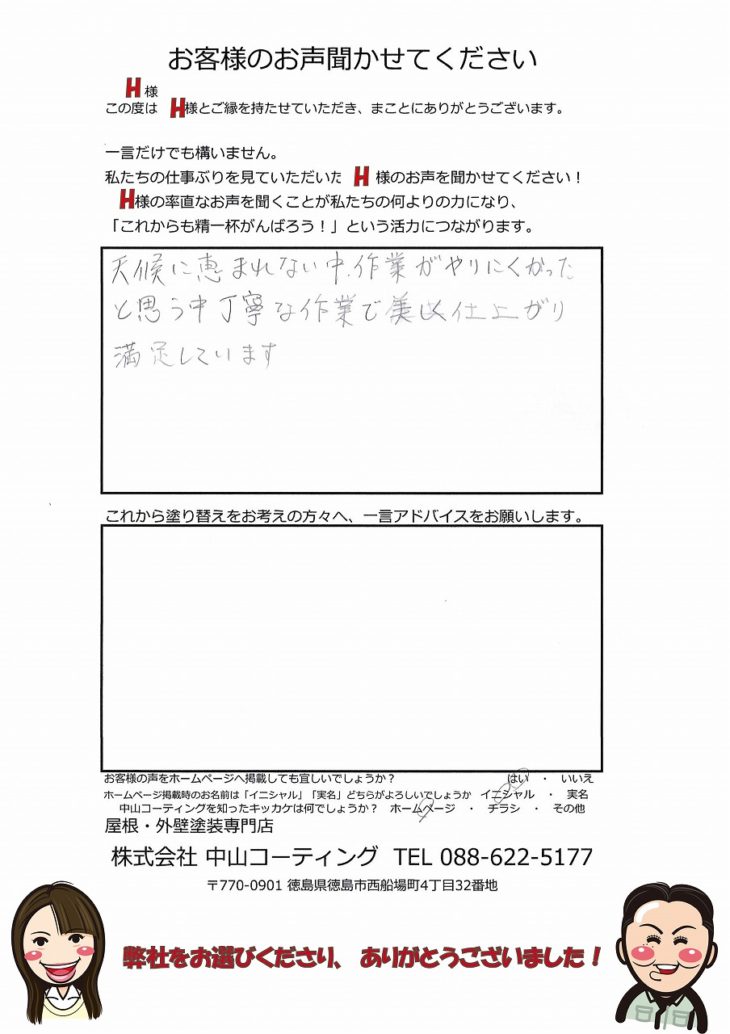 お客様のお声聞かせてください
H様
この度は H様とご縁を持たせていただき、まことにありがとうございます。
一言だけでも構いません。
私たちの仕事ぶりを見ていただいた H 様のお声を聞かせてください！
H様の率直なお声を聞くことが私たちの何よりの力になり、
「これからも精一杯がんばろう！」という活力につながります。
天候に恵まれない中、作業がやりにくかった
と思う中丁寧な作業で美しく仕上がり
満足しています
これから塗り替えをお考えの方々へ、一言アドバイスをお願いします。
お客様の声をホームページへ掲載しても宜しいでしょうか？ はい ・ いいえ
ホームページ掲載時のお名前は「イニシャル」「実名」どちらがよろしいでしょうか イニシャル ・ 実名
中山コーティングを知ったキッカケは何でしょうか？ ホームページ ・ チラシ ・ その他
屋根・外壁塗装専門店
株式会社 中山コーティング TEL 088-622-5177
〒770-0901 徳島県徳島市西船場町4丁目32番地
弊社をお選びくださり、ありがとうございました！